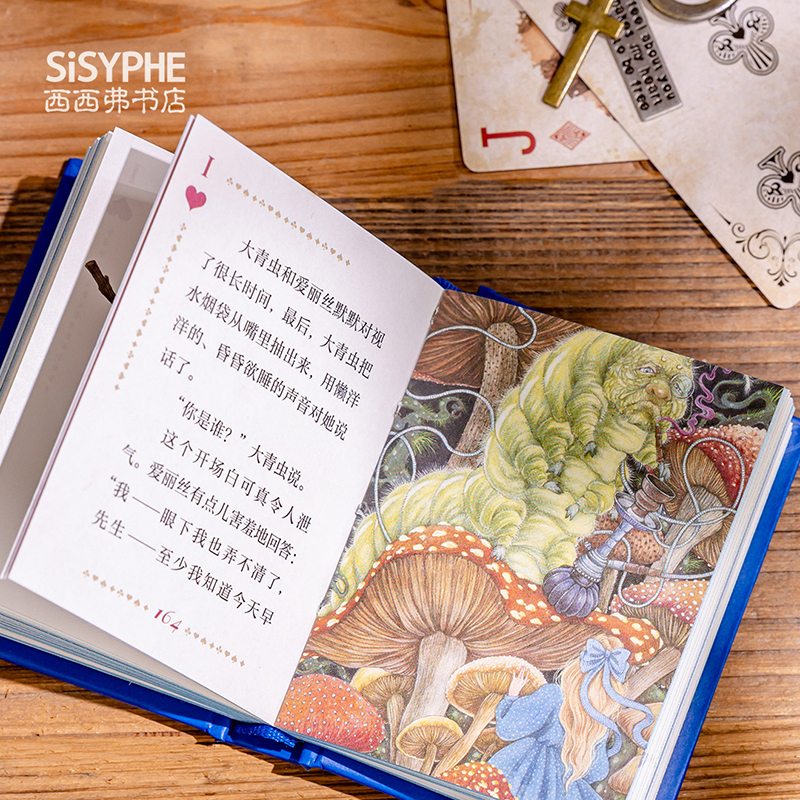 SiSYPHE
西西弗书店
J
I
大青虫和爱丽丝默默对视
了很长时间，最后，大青虫把
水烟袋从嘴里抽出来，用懒洋
洋的、昏昏欲睡的声音对她说
话了。
“你是谁？”大青虫说。
这个开场白可真令人泄
气。爱丽丝有点儿害羞地回答：
“我——眼下我也弄不清了，
先生——至少我知道今天早
164
about you
my heart
to be free